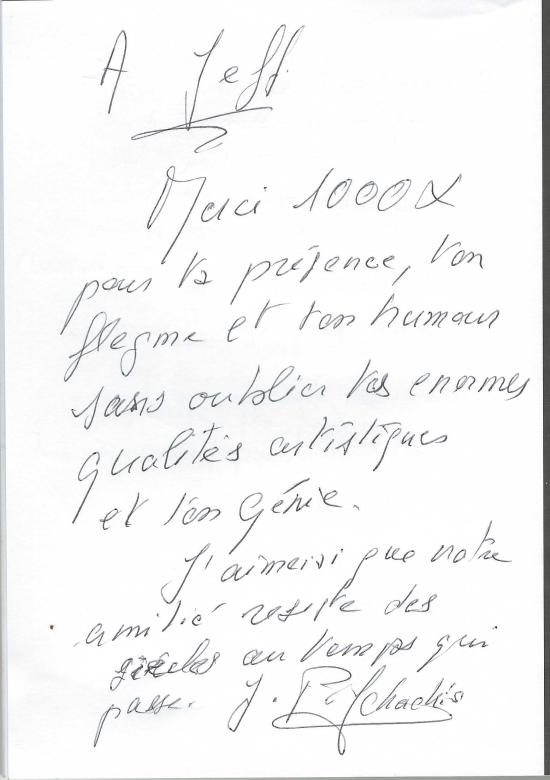 A Jeff
Merci 1000 X
pour ta présence, ton
flegme et ton humour
sans oublier tes enormes
qualités artistiques
et ton Génie.
J'aimerai que notre
amitié resiste des
siècles au temps qui
passe. J.